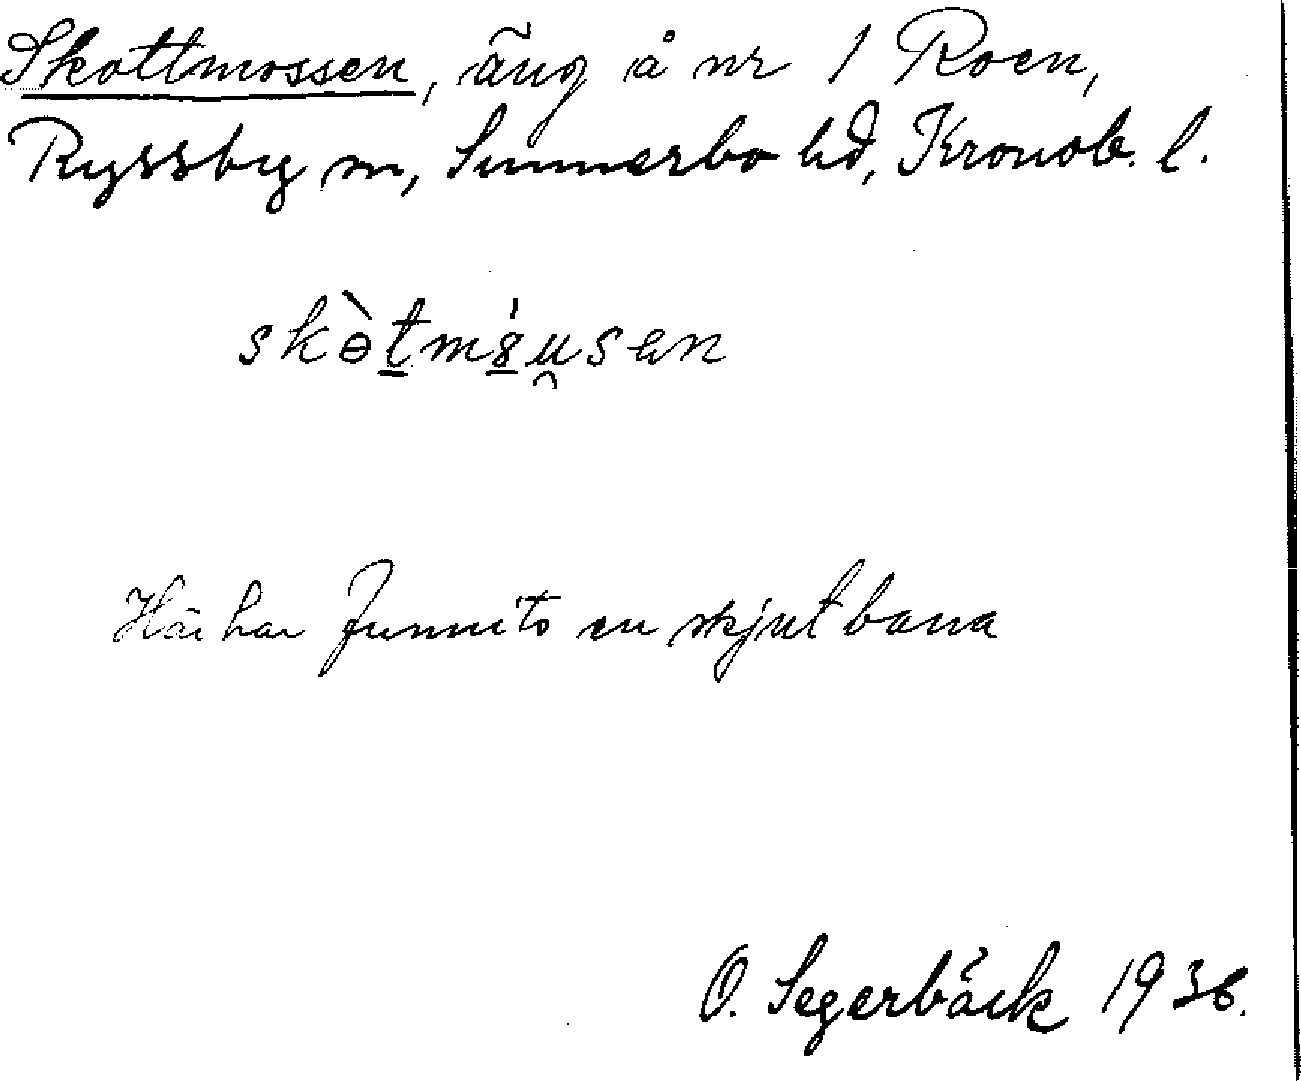 Skottmossen, äng å nr 1 Roen,
Ryssby sn, Sunnerbo hd, Kronob. l.
skɵ̀t̲mǿ̲u̯sen
Här har funnits en skjutbana
O. Segerbäck 1936.